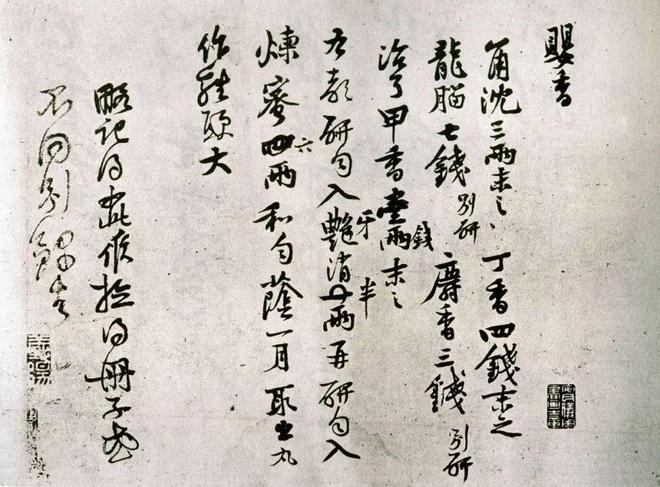 嬰香
角沈三兩末之丁香四錢末之
龍腦七錢別研麝香三錢別研
治了甲香壹兩錢末之
右都研勻入艷牙消一兩半再研勻入
煉蜜四六兩和勻蔭一月取出丸
作雞頭大
略記得此候檢得冊子或
不同別錄去